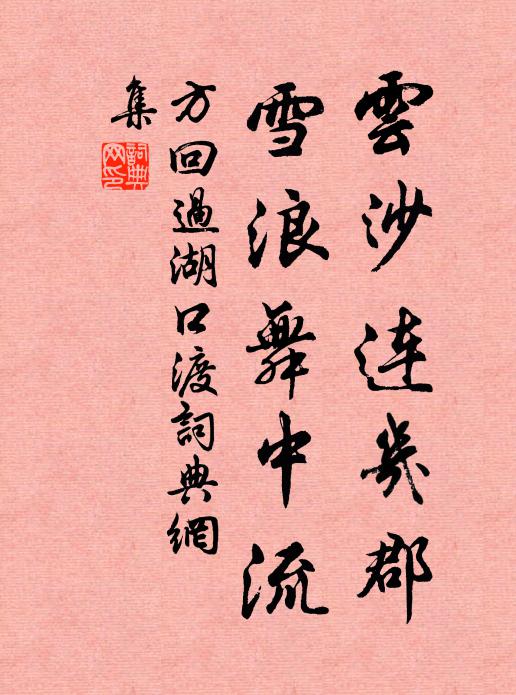 雲沙連幾郡
雪浪舞中流
方回過湖口渡詞典網
集
詞典網印